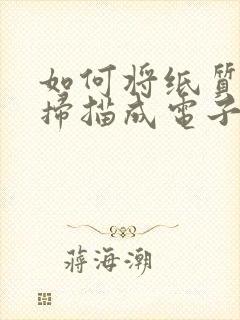 如何将纸质
掃描成電子
蒋海潮